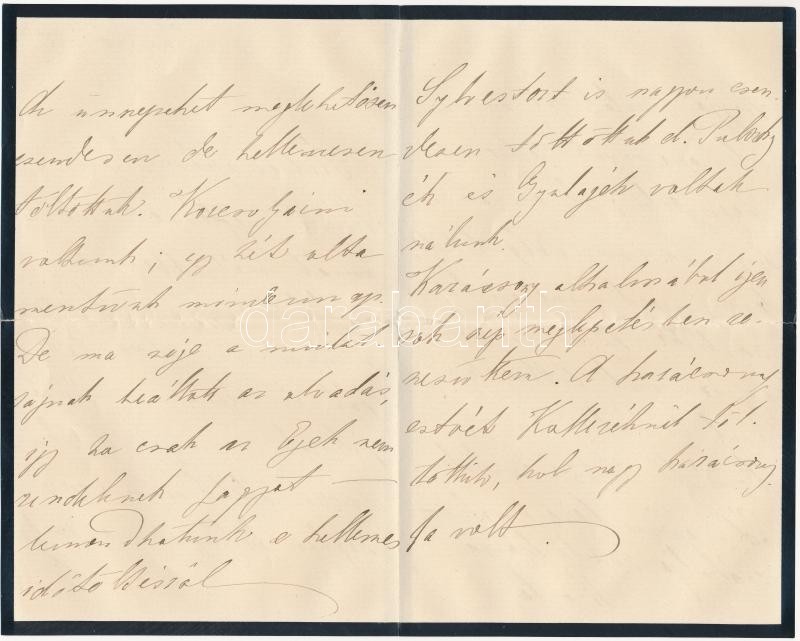 Az ünnepeket meglehetősen
csendesen de kellemesen
töltöttük. Korcsolyázni
voltunk; egy hét alta
mentünk minden nap.
De ma vége a mulat
ságnak beállott az olvadás,
így ha csak az Egek nem
rendelnek fagyot —
lemondhatunk e kellemes
időtöltésről
Sylvestert is nagyon csen-
desen töltöttük el. Pulszky
ék és Gyulayék voltak
nálunk.
Karácsony alkalmából igen
sok szép meglepetésben ré-
szesültem. A karácsony
estvét töl-
töttük, hol nagy karácsony
fa volt.
databanth